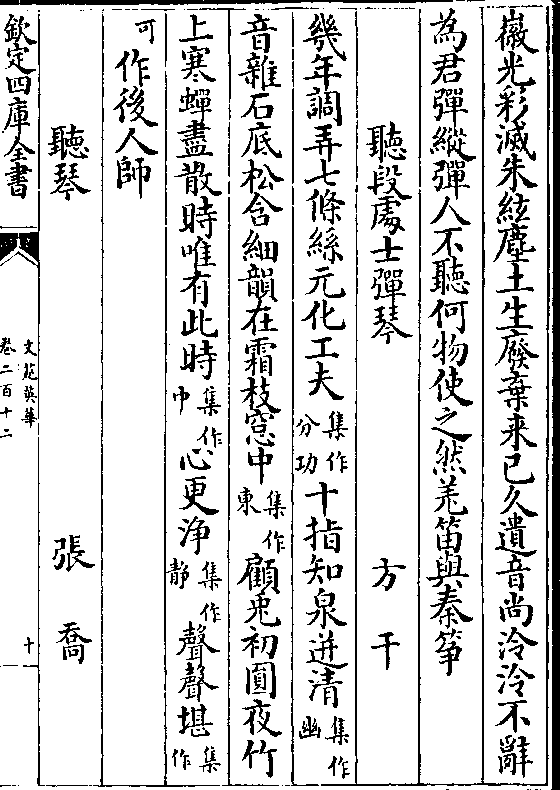 徽光彩滅朱絃塵土生廢棄来已久遺音尚泠泠不辭
為君彈縱彈人不聽何物使之然羌笛與秦箏
聽段處士彈琴 方干
幾年調弄七條絲元化工夫集作分功十指知泉迸清集作幽
音離石底松含細韻在霜枝窓中集作東顧兎初圓夜竹
上寒蟬盡散時唯有此時集作中心更浄集作静聲聲堪集作
可作後人師
聽琴 張喬
欽定四庫全書
文苑英華
卷二百十二
十